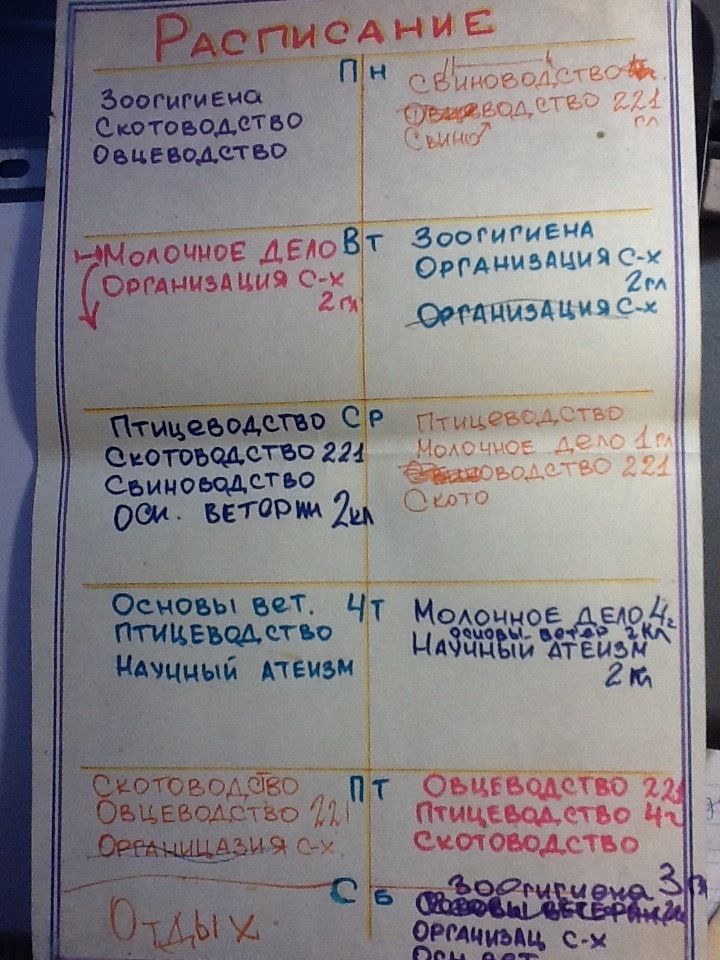 Расписание
Пн
Зоогигиена
Скотоводство
Овцеводство
Свиноводство
водство 221
гл
Свино
Вт
Молочное дело
Организация с-х
2 гл
Зоогигиена
Организация с-х
2 гл
Организация с-х
Ср
Птицеводство
Скотоводство 221
Свиноводство
Осн. веторин 2кл
Птицеводство
Молочное дело 1 гл
оводство 221
Ското
Чт
Основы вет.
Птицеводство
Научный атеизм
Молочное дело 4г
основы ветер 2кл
Научный атеизм
2 кл
Пт
Скотоводство
Овцеводство 221
Органицазия с-х.
Овцеводство 221
Птицеводство 4г
Скотоводство
Сб
Отдых.
Зоогигиена 3 гл
Организац с-х
Осн вет